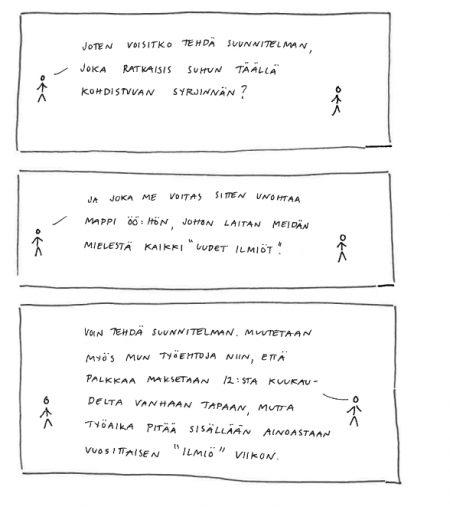 JOTEN VOISITKO TEHDÄ SUUNNITELMAN,
JOKA RATKAISIS SUHUN TÄÄLLÄ
KOHDISTUVAN SYRJINNÄN?
JA JOKA ME VOITAS SITTEN UNOHTAA
MAPPI ÖÖ:HÖN, JOHON LAITAN MEIDÄN
MIELESTÄ KAIKKI "UUDET ILMIÖT".
VOIN TEHDÄ SUUNNITELMAN. MUUTETAAN
MYÖS MUN TYÖEHTOJA NIIN, ETTÄ
PALKKAA MAKSETAAN 12:STA KUUKAU-
DELTA VANHAAN TAPAAN, MUTTA
TYÖAIKA PITÄÄ SISÄLLÄÄN AINOASTAAN
VUOSITTAISEN "ILMIÖ" VIIKON.